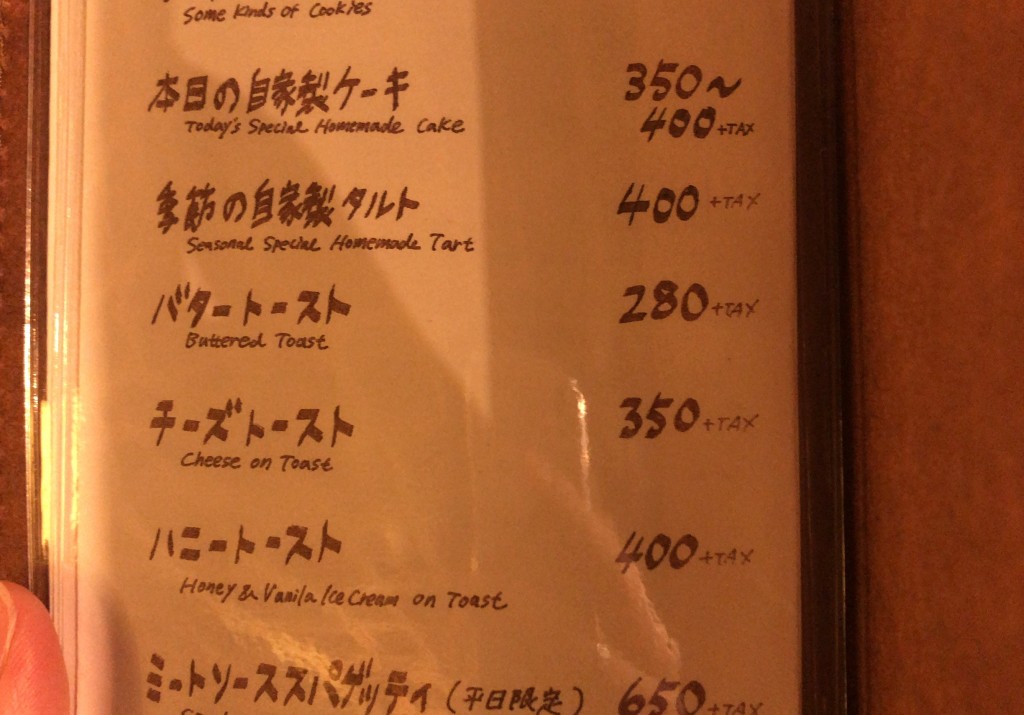 Some Kinds of Cookies
本日の自家製ケーキ 350〜
Today's Special Homemade Cake 400+TAX
季節の自家製タルト 400 +TAX
Seasonal Special Homemade Tart
バタートースト 280+TAX
Buttered Toast
チーズトースト 350+TAX
Cheese on Toast
ハニートースト 400+TAX
Honey & Vanila Ice Cream on Toast
ミートソーススパゲッティ(平日限定) 650+TAX